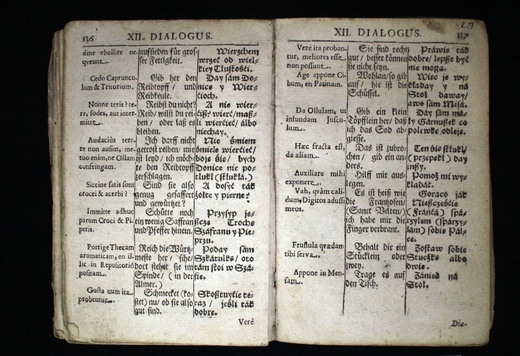 136 XII. DIALOGUS.
dine ebullire ne-
queunt.
Cedo Capruncu-
lum & Tritorium.
Nonne teris? te-
re, sodes, aut inter-
mitte.
Audacius tere-
re non ausim, me-
tuo enim, ne Ollam
confringam.
Siccine satis sunt
crocata & acria?
Immitte adhuc
parum Croci & Pi-
peris.
Porrige Thecam
aromaticam, en il-
lic in Repositorio
positam.
Gusta num ita
probentur.
lauffieden für gros-
ser Fettigkeit.
Gib her den
Reibtopff / und
Reibkeule.
Reibst du nicht?
Reib / wilst du rei-
ben / oder laß es
bleiben.
Ich darff nicht
getrost reiben / mir
ist leyd / ich möch-
te den Reibtopff
zerschlagen.
Sind sie also
genug gesaffert
und gewürtzet?
Schütte noch
ein wenig Saffran
und Pfeffer hinein.
Reich die Würtz-
meste her / sihe /
dort stehet sie im
Spinde / (in der
Almer.)
Schmecket (ko-
stet) nu / ob sie also
gut sind.
Wierzchem
wrzeć od wiel-
kiey Tłustości.
Day sam Do-
nice y Wier-
cioch.
A nie wier-
cisz?
wiercieć / albo
niechay.
Nie śmiem
śmiele wiercieć /
boję się / bych
Donice nie po-
tłukł (stłukł.)
A dosyć tak
żołte y pierne?
Przysyp je-
szcze Trochę
Szafranu y Pie-
przu.
Poday sam
Szkatułkę / oto
tam stoi w Sza-
fie.
Skosztuycie te-
raz / jeśli tak
dobre.
Verè
XII. DIALOGUS. 137
Verè ita proban-
tur, meliores esse
non possunt.
Age appone Ci-
bum, en Patinam.
Da Ollulam, ut
infundam Juscu-
lum.
Hæc fracta est,
da aliam.
Auxiliare mihi
exponere.
Vah, quàm cali-
dum, Digitos adussi
meos.
Frustula quædam
tibi serva.
Appone in Men-
sam.
Sie sind recht
gut / besser können
sie nicht seyn.
Wohlan / so gib
auf / hie ist die
Schüssel.
Gib ein klein
Töpfflein her / daß
ich das Sod ab-
giesse.
Das ist zubro-
chen / gib ein an-
ders.
Hilff mit aus-
legen.
Es ist heiß wie
die Franzosen /
(Sanct Velten /)
ich habe mir die
Finger verbrant.
Behalt dir ein
Stücklein oder
zwey.
Tragt es auf
den Tisch.
Prawie tak
dobre / lepsze być
nie mogą.
Wiec je wy-
kładay / na
Stoł daway /
sam Misa.
Day sam ma-
ły Garnuszek co
polewkę obleję-
Ten się stłukł /
(przepukł) day
inszy.
Pomoż mi wy-
kładać.
Gorąco jak
Nieszczęście
(Franca) spa-
rzyłam (sparzy-
łam) sobie Pal-
ce.
Zostaw sobie
Stuczkę albo
dwie.
Zanieś na
Stoł.
Dia-